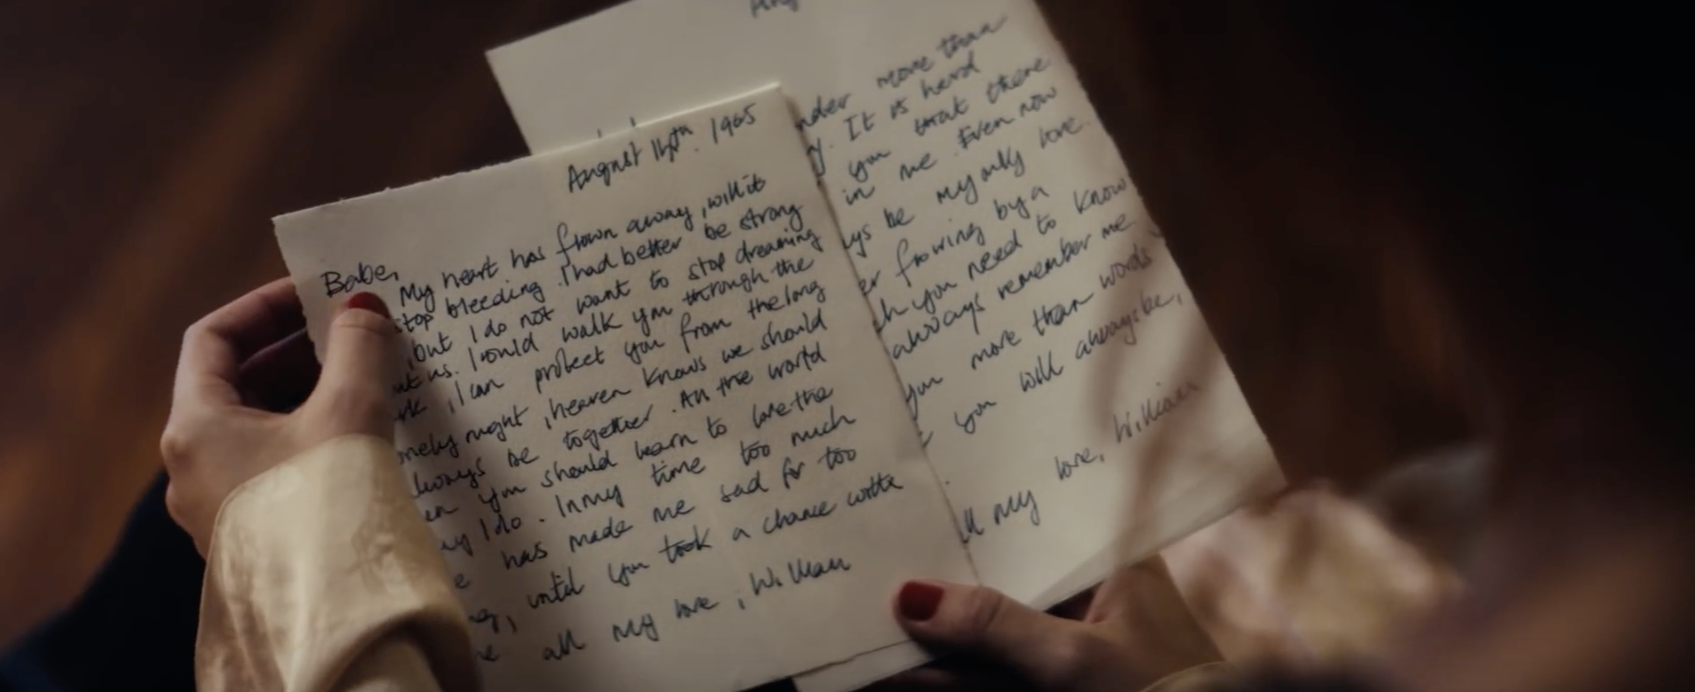 August 14th. 1965
Babe,
My heart has flown away, will it
stop bleeding. I had better be strong
but I do not want to stop dreaming
us. I could walk you through the
I can protect you from the long
night, heaven knows we should
be together. All the world
you should learn to love the
I do. In my time too much
has made me sad for too
until you took a chance with
all my love, William
more than
It is hard
you that there
in me. Even now
be my only love.
by a
you need to know
always remember me
you more than words
you will always be,
my love, William